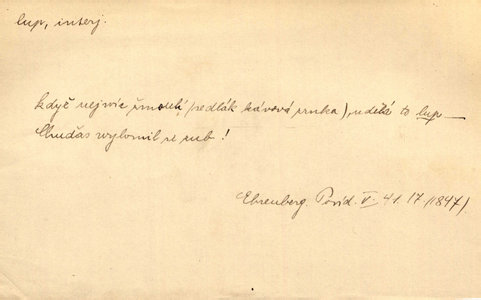 lup, interj.
když nejvíc šmelí (sedlák kávová zrnka), udělá to lup —
Chudás vylomil si zub!
Ehrenberg. Povíd. V. 41. 17 (1847).